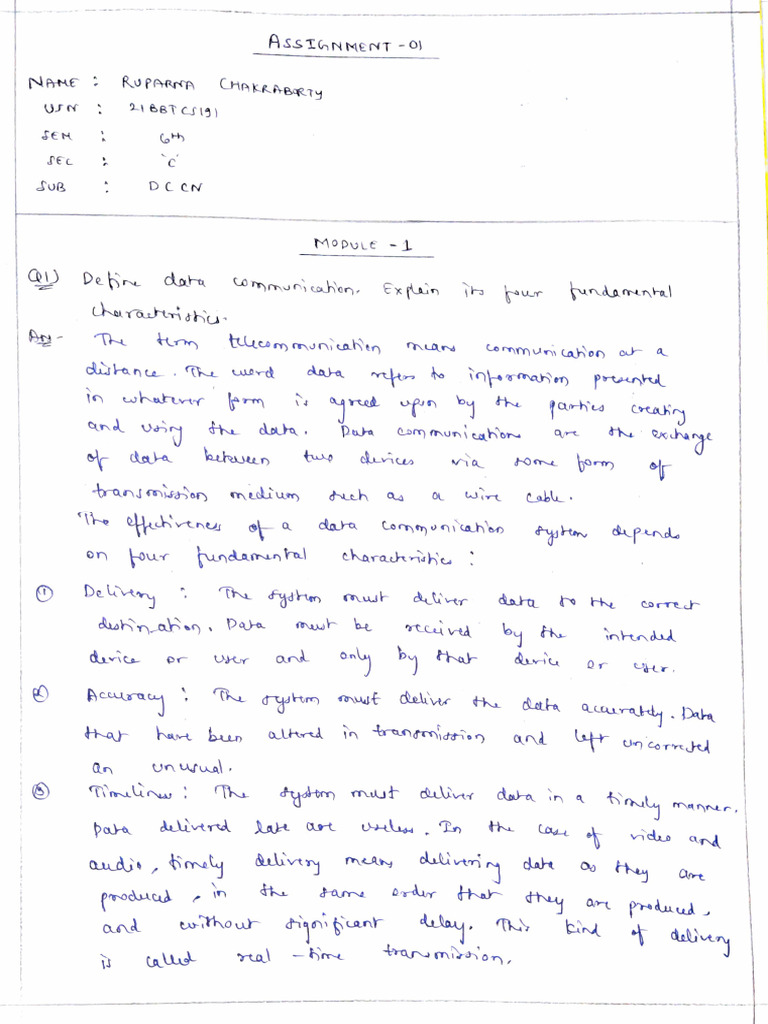 ASSIGNMENT - 01
NAME : RUPARNA CHAKRABORTY
USN : 21BBTCS191
SEM : 6th
SEC : 'C'
SUB : DCCN
MODULE - 1
Q1) Define data communication. Explain its four fundamental
characteristics.
An- The term telecommunication means communication at a
distance. The word data refers to information presented
in whatever form is agreed upon by the parties creating
and using the data. Data communications are the exchange
of data between two devices via some form of
transmission medium such as a wire cable.
The effectiveness of a data communication system depends
on four fundamental characteristics :
① Delivery : The system must deliver data to the correct
destin_ation. Data must be received by the intended
device or user and only by that device or user.
② Accuracy : The system must deliver the data accurately. Data
that have been altered in transmission and left uncorrected
an unusual.
③ Timeliness : The system must deliver data in a timely manner.
Data delivered late are useless. In the case of video and
audio, timely delivery means delivering data as they are
produced, in the same order that they are produced,
and without significant delay. This kind of delivery
is called real-time transmission.